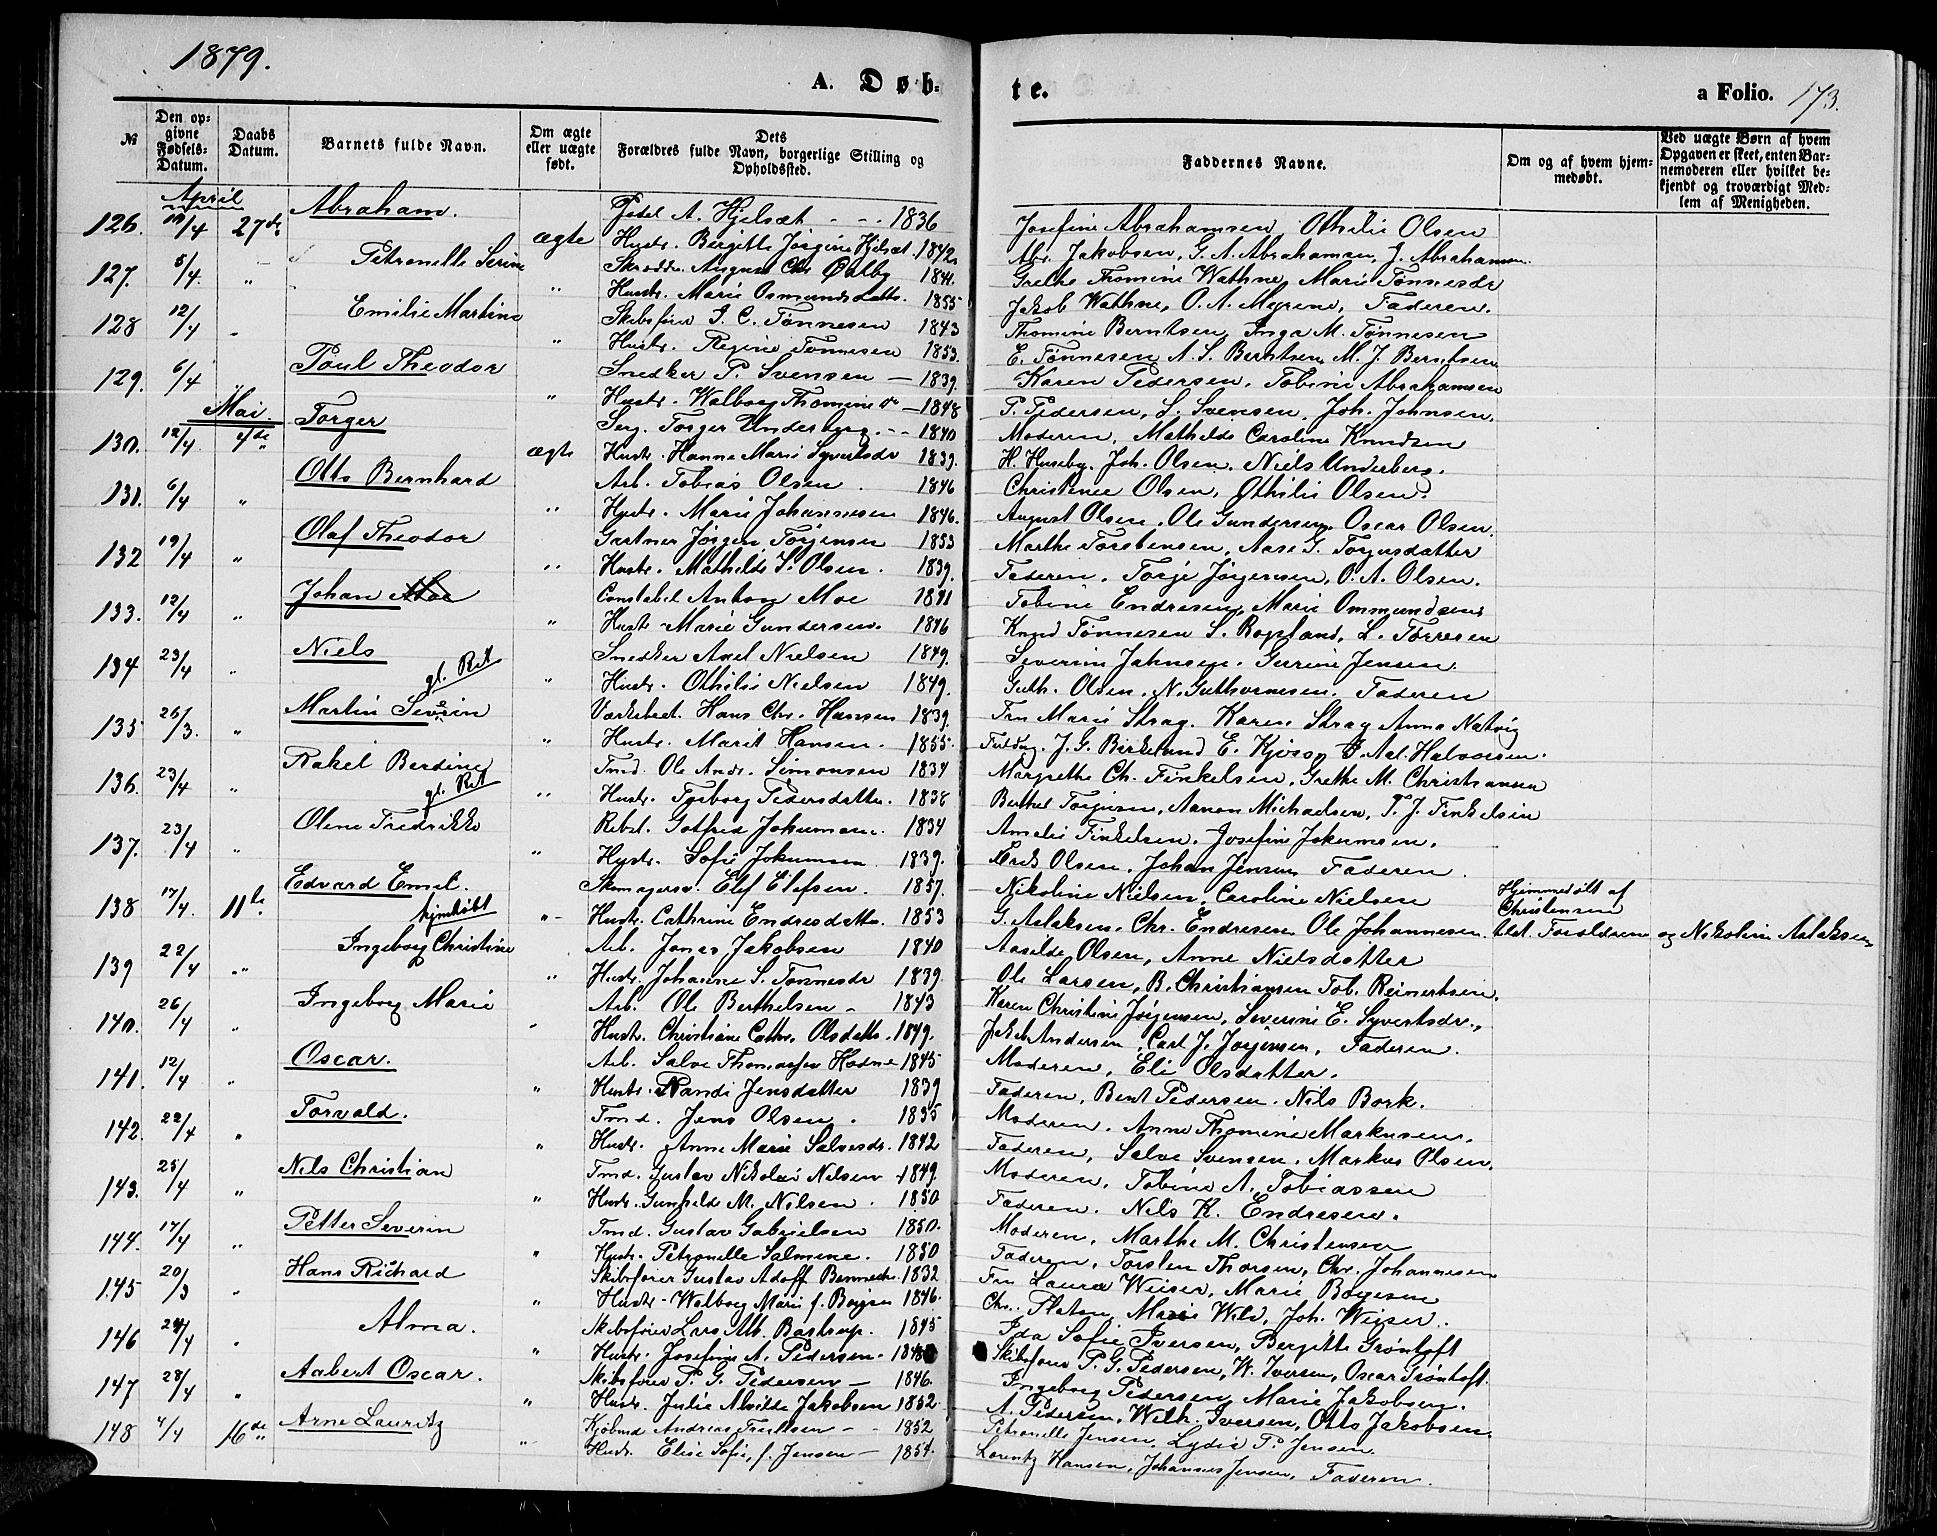 1879.
A. Døb-
te.
a Folio. 173.
№
Den opgivne Fødsels-Datum.
Daabs Datum.
Barnets fulde Navn.
Om ægte eller uægte født.
Dets Forældres fulde Navn, borgerlige Stilling og Opholdssted.
Faddernes Navne.
Om og af hvem hjemmedøbt.
Ved uægte Børn af hvem Opgaven er skeet, enten Barnemoderen eller hvilket bekjendt og troværdigt Medlem af Menigheden.
April
Abraham. A. Hjelsæt - - - 1836 Josefine Abrahamsen, Othilie Olsen
126. 19/4 27de ægte Hustr. Birgitte Jørgine Hjelsæt. 1842 Abr. Jakobsen, G. A. Abrahamsen, J. Abrahamsen.
Petronelle Serine Skrædder August Chr. Østby 1844. Grethe Thomine Wathne, Marie Tønnesdr
127. 5/4. " " Hustr. Marie Osmundsdattr. 1855 Jakob Wathne, O. A. Myrene, Faderen.
Emilie Martine Skibsfører S. C. Tønnesen 1843 Thomine Berntsen, Inga M. Tønnesen
128 12/4 " " Hustr. Regine Tønnesen 1853. E. Tønnesen A. S. Berntsen, M. J. Berntsen
Poul Theodor Snedker P. Svensen — 1839. Karen Pedersen, Tobine Abrahamsen
129. 6/4 " " Hustr. Walborg Thomine — 1848 P. Pedersen, S. Svensen, Joh. Johnsen.
Mai.
Torger Serg. Torger Underberg. - - 1840 Moderen, Mathilde Caroline Knudsen
130. 12/4. 4de ægte Hustr. Hanne Marie Syvertsdr 1839. H. Huseby, Joh. Olsen, Niels Underberg.
Otto Bernhard Arb. Tobias Olsen. 1846 Christence Olsen, Othilie Olsen.
131. 6/4 " " Hustr. Marie Johannesen 1846. August Olsen, Ole Gundersen, Oscar Olsen.
Olaf Theodor Gartner Jørgen Torjensen 1853 Marthe Torstensen, Aase G. Torjusdatter
132 19/4 " " Hustr. Mathilde S. Olsen. 1839. Faderen, Torje Jørgensen, O. A. Olsen.
Johan Moe Constabel Anton Moe 1841 Tobine Endresen, Marie Ommundsen
133. 12/4 " " Hustr. Marie Gundersen. 1846 Knud Tønnesen S. Rogsland, L. Torresen
Niels Snedker Axel Nielsen 1849. Severine Johnsen. Gerrine Jensen.
134 23/4 " gl. Rit " Hustr. Othilie Nielsen 1849. Guth. Olsen. N. Guthormsen. Faderen
Martin Severin Værksbest. Hans Chr. Hansen 1839. Fru Marie Stray. Karen Stray Anna Natvig
135 26/3. " " Hustr. Marit Hansen. 1855. J. G. Birkelund E. Kjøss, Halvorsen.
Rakel Berdine Tmd. Ole Andr. Simonsen 1834 Margrethe Ch. Finkelsen, Grethe M. Christiansen
136. 23/4 " gl. Rit " Hustr. Tyeborg Pedersdatter. 1838 Berthel Torjusen, Aanon Michaelsen, T. J. Finkelsen
Olene Fredrikke Rebsl. Gotfred Jokumsen. 1834 Amalie Finkelsen. Josefine Jokumsen.
137. 23/4 " " Hustr. Sofie Jokumsen 1839. Erik Olsen, Johan Jensen Faderen.
Edvard Emil. Skomagersv. Elef Elefsen. 1857. Nikoline Nielsen, Caroline Nielsen Hjemmedøbt af Christensen
138 17/4. 11te hjmdøbt " Hustr. Cathrine Endresdatter. 1853 G. Aslaksen, Chr. Endresen Ole Johannesen. tilst. Forældrene og Nikoline Aslaksen
Ingeborg Christine Arb. Jonas Jakobsen 1840 Aasilde Olsen, Anne Nielsdatter
139 22/4 " " Hustr. Johanne S. Tønnesdr 1839. Ole Larsen, B. Christiansen Tob. Reinertsen.
Ingeborg Marie Arb. Ole Berthelsen - 1843 Karen Christine Jørgensen, Severine E. Syvertsdr.,
140. 26/4 " " Hustr. Christiane Cathr. Olsdattr. 1849. Jakob Andersen, Carl J. Jørgensen, Faderen.
Oscar. Arb. Salve Thomassen Hodne 1845 Moderen, Eli Olsdatter.
141. 12/4 " " Hustr. Randi Jensdatter 1839 Faderen, Bent Pedersen. Nils Bork.
Torvald. Tmd. Jens Olsen. 1835 Moderen. Anne Thomine Markusen.
142. 22/4 " " Hustr. Anne Marie Salvesdr. 1842 Faderen, Salve Svensen. Markus Olsen.
Nils Christian Tmd. Gustav Nikolai Nilsen 1849. Moderen, Tobine A. Tobiassen
143. 25/4 " " Hustr. Gunhilde M. Nilsen. 1850 Faderen. Nils K. Endresen.
Petter Severin Tmd. Gustav Gabrielsen 1850. Moderen, Marthe M. Christensen
144. 17/4 " " Hustr. Petronelle Salmine. 1850 Faderen, Torsten Thorsen, Chr. Johannesen
Hans Richard Skibsfører Gustav Adolf Bennecke. 1832 Fru Laura Wieser, Marie Boyesen
145 20/3 " " Hustr. Walborg Marie f. Boysen 1846. Chr. Platon, Marie Wild, Joh. Wieser.
Alma. Skibsfører Lars Alb. Bastrup. 1845 Ida Sofie Iversen, Bergitte Grøntoft
146 24/4 " " Hustr. Josefine A. Pedersen. 1848 Skibsfører P. G. Pedersen, W. Iversen, Oscar Grøntoft.
Aabert Oscar. Skibsfører P. G. Pedersen — 1846. Ingeborg Pedersen, Marie Jakobsen.
147 28/4 " " Hustr. Julie Alvilde Jakobsen 1852. A. Pedersen, Wilh. Iversen, Otto Jakobsen.
Arne Lauritz Kjøbmd Andreas - - 1852 Petronelle Jensen, Lydie P. Jensen.
148 4/4 16de " Hustr. Elise Sofie, f. Jensen — 1854. Lorentz Hansen, Johannes Jensen, Faderen.